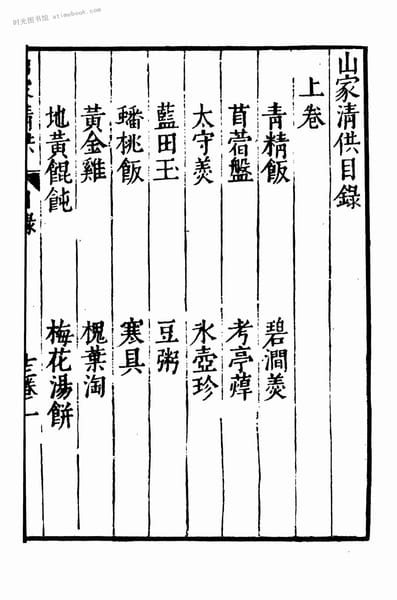 时光图书馆 · xtimebook.com
山家清供目錄
上卷
青精飯 碧澗羹
苜蓿盤 考亭蔊
太守羹 冰壺珍
藍田玉 豆粥
蟠桃飯 寒具
黃金雞 槐葉淘
地黃餛飩 梅花湯餅